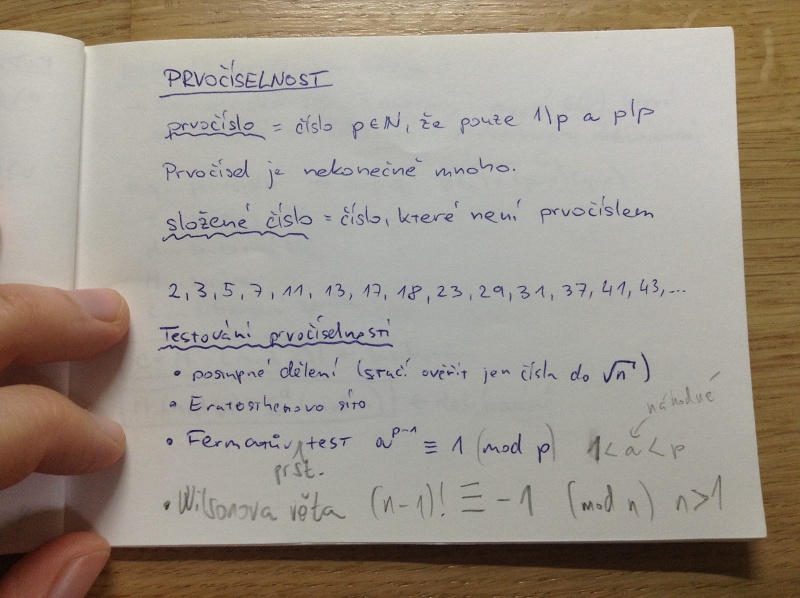 PRVOČÍSELNOST
prvočíslo = číslo p∈ℕ, že pouze 1|p a p|p
Prvočísel je nekonečně mnoho.
složené číslo = číslo, které není prvočíslem
2, 3, 5, 7, 11, 13, 17, 18, 23, 29, 31, 37, 41, 43, ...
Testování prvočíselnosti
• postupné dělení (stačí ověřit jen čísla do √n)
• Eratosthenovo síto
náhodné
• Fermatův test a^(p-1) ≡ 1 (mod p) 1 < a < p
prst.
• Wilsonova věta (n-1)! ≡ -1 (mod n) n>1